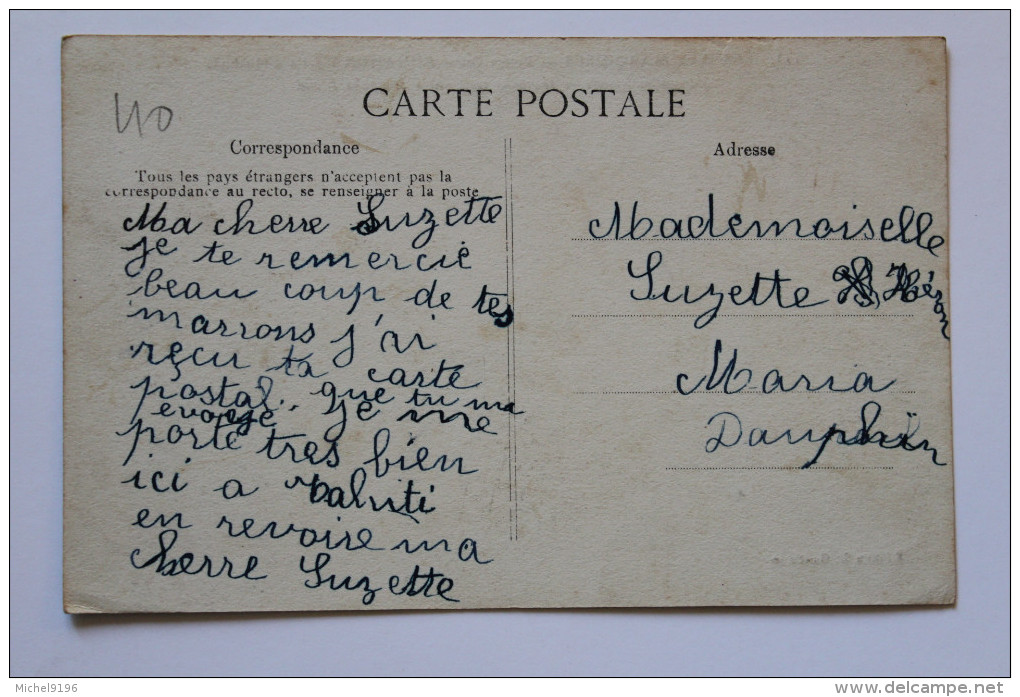 110
CARTE POSTALE
Correspondance
Tous les pays étrangers n'acceptent pas la
correspondance au recto, se renseigner à la poste
Ma cherre Suzette
je te remercie
beau coup de tes
marrons j'ai
reçu ta carte
postal. que tu ma
evoege. je me
porte tres bien
ici a Tahiti
en revoire ma
cherre Suzette
Adresse
Mademoiselle
Suzette Héron
Maria
Dauphin
Michel9196
www.delcampe.net